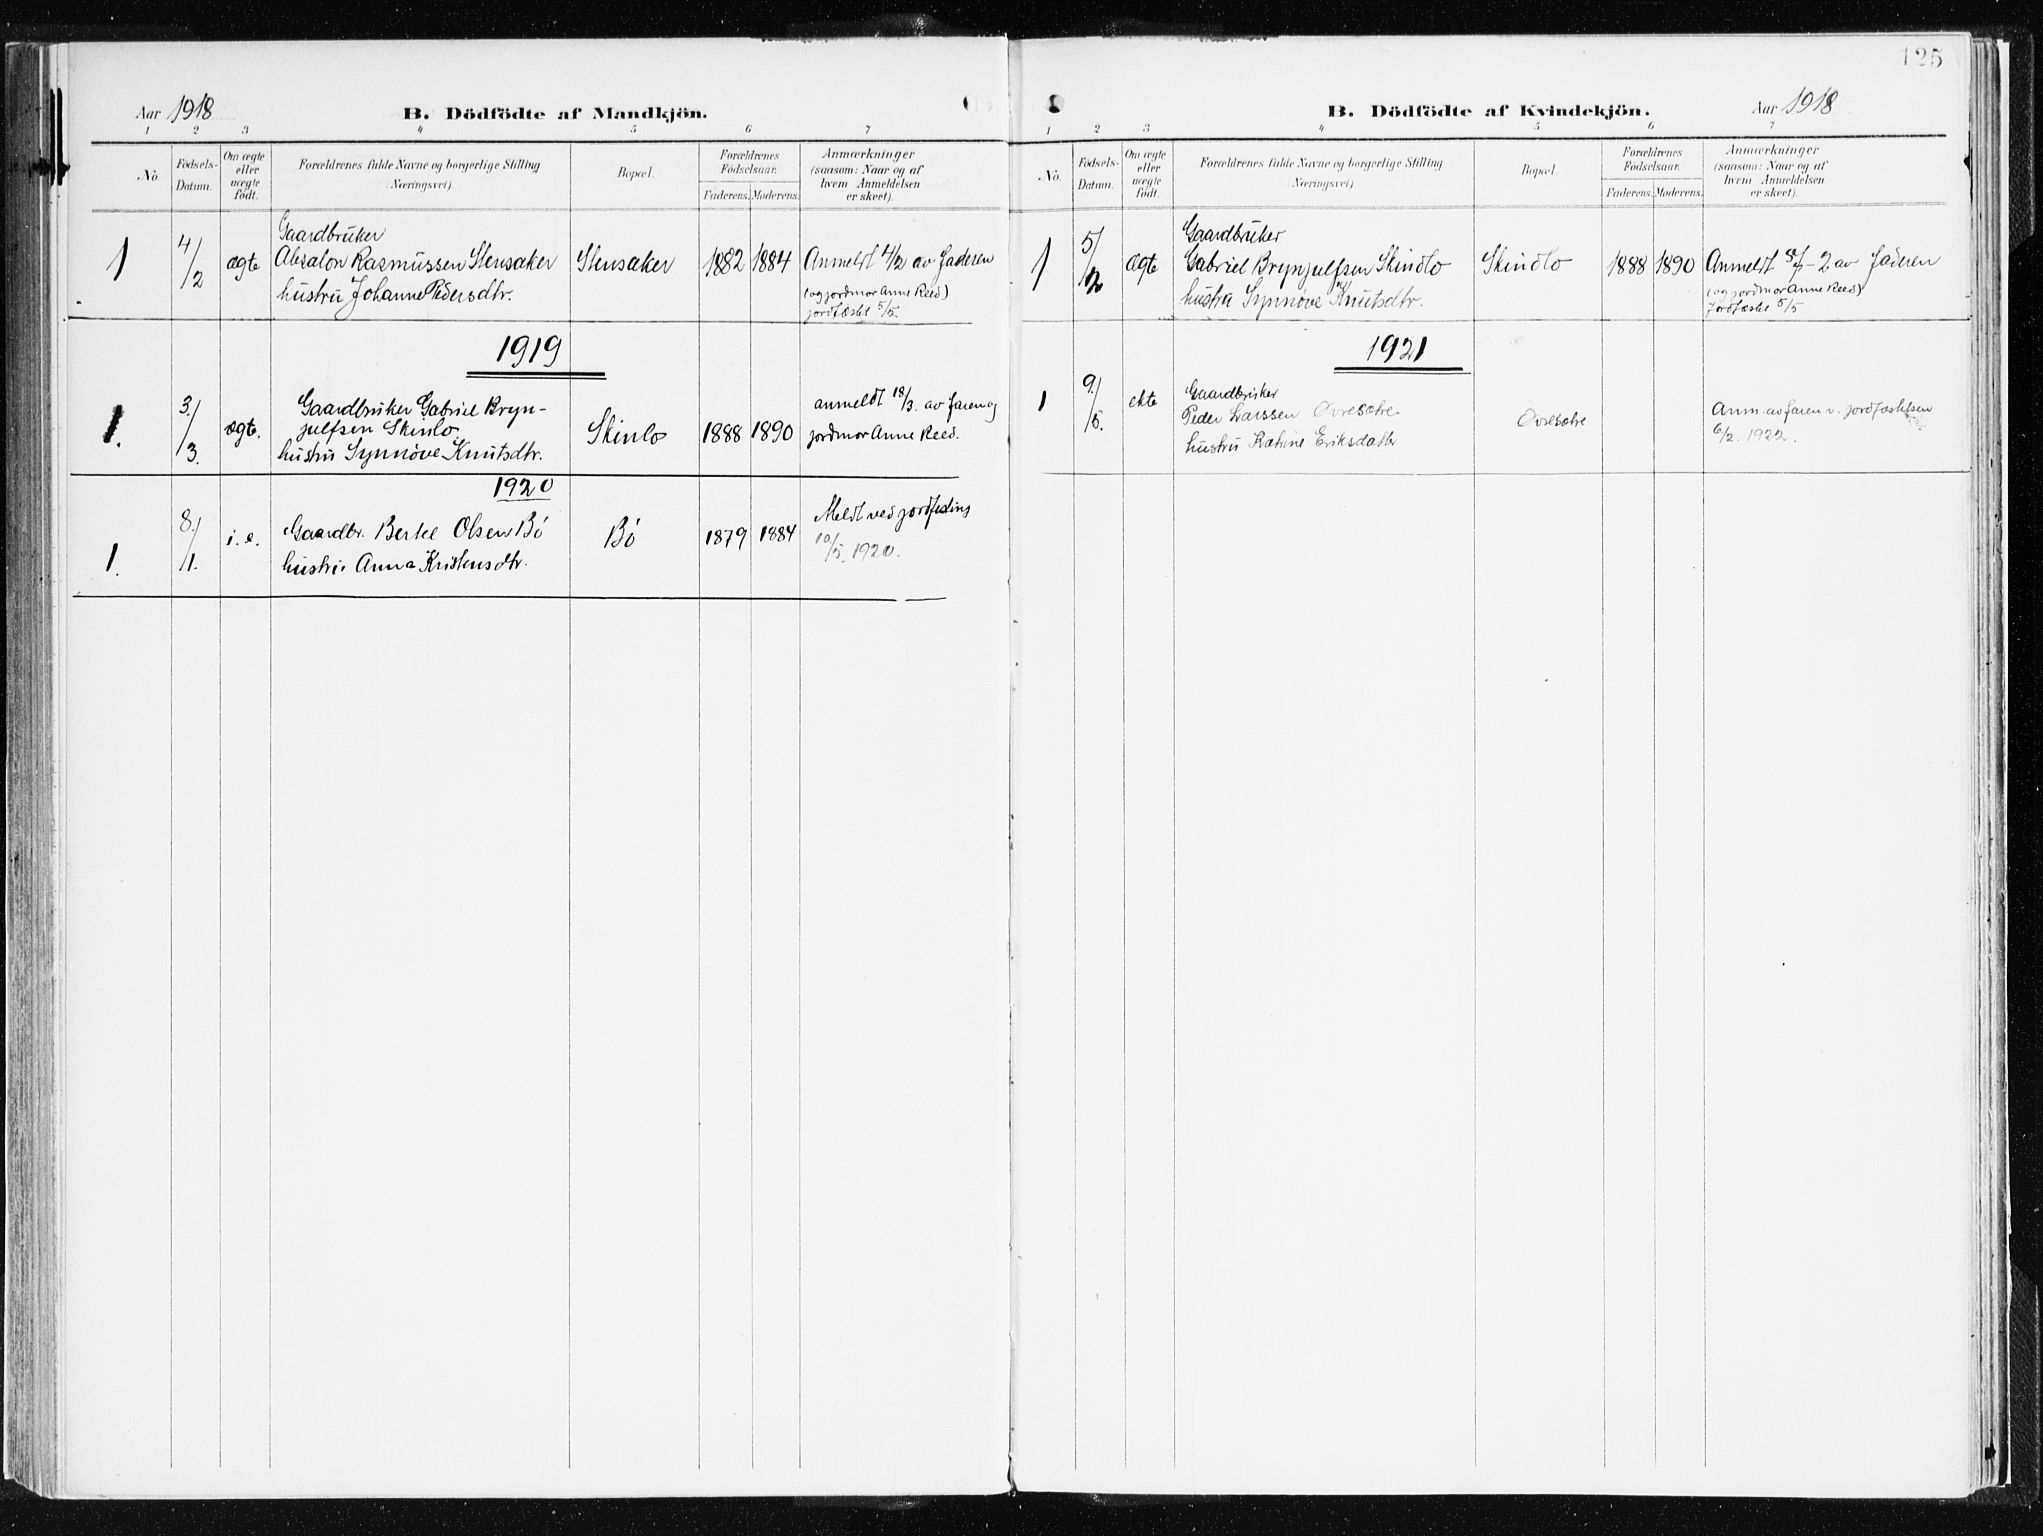 Aar 1918
B. Dödfödte af Mandkjön.
1 2 3 4 5 6 7
No.
Fødsels-
Datum.
Om ægte
eller
uægte
født.
Forældrenes fulde Navne og borgerlige Stilling
(Næringsvei).
Bopæl.
Forældrenes
Fødselsaar.
Faderens. Moderens.
Anmærkninger
(saasom: Naar og af
hvem Anmeldelsen
er skeet).
1
4/2
ægte
Gaardbruker
Absalon Rasmussen Stensaker
hustru Johanne Pedersdtr.
Stensaker
1882 1884
Anmeldt 4/2 av Faderen
(og jordmor Anne Reed)
jordfæstet 5/5.
1919
1.
3./3.
ægte.
Gaardbruker Gabriel Bryn-
julfsen Skinlo
hustru Synnøve Knutsdtr.
Skinlo
1888 1890
anmeldt 18/3. av faren og
jordmor Anne Reed.
1920
1.
8./1.
i. e.
Gaardbr. Bertel Olsen Bö
hustru Anna Kristensdtr.
Bö
1879 1884
Meldt ved jordfesting
10/5. 1920.
125
B. Dödfödte af Kvindekjön.
Aar 1918
1 2 3 4 5 6 7
No.
Fødsels-
Datum.
Om ægte
eller
uægte
født.
Forældrenes fulde Navne og borgerlige Stilling
(Næringsvei).
Bopæl.
Forældrenes
Fødselsaar.
Faderens. Moderens.
Anmærkninger
(saasom: Naar og af
hvem Anmeldelsen
er skeet).
1
5/2
ægte
Gaardbruker
Gabriel Brynjulfsen Skindlo
hustru Synnøve Knutsdtr.
Skindlo
1888 1890
Anmeldt av Faderen
(og jordmor Anne Reed)
Jordfæstet 5/5
1921
1
9./5.
ekte
Gaardbruker
Peder Larssen Øvresætre
hustru Katrine Eriksdatter
Øvresætre
Anm. av faren v. jordfæstelsen
6/2. 1922.